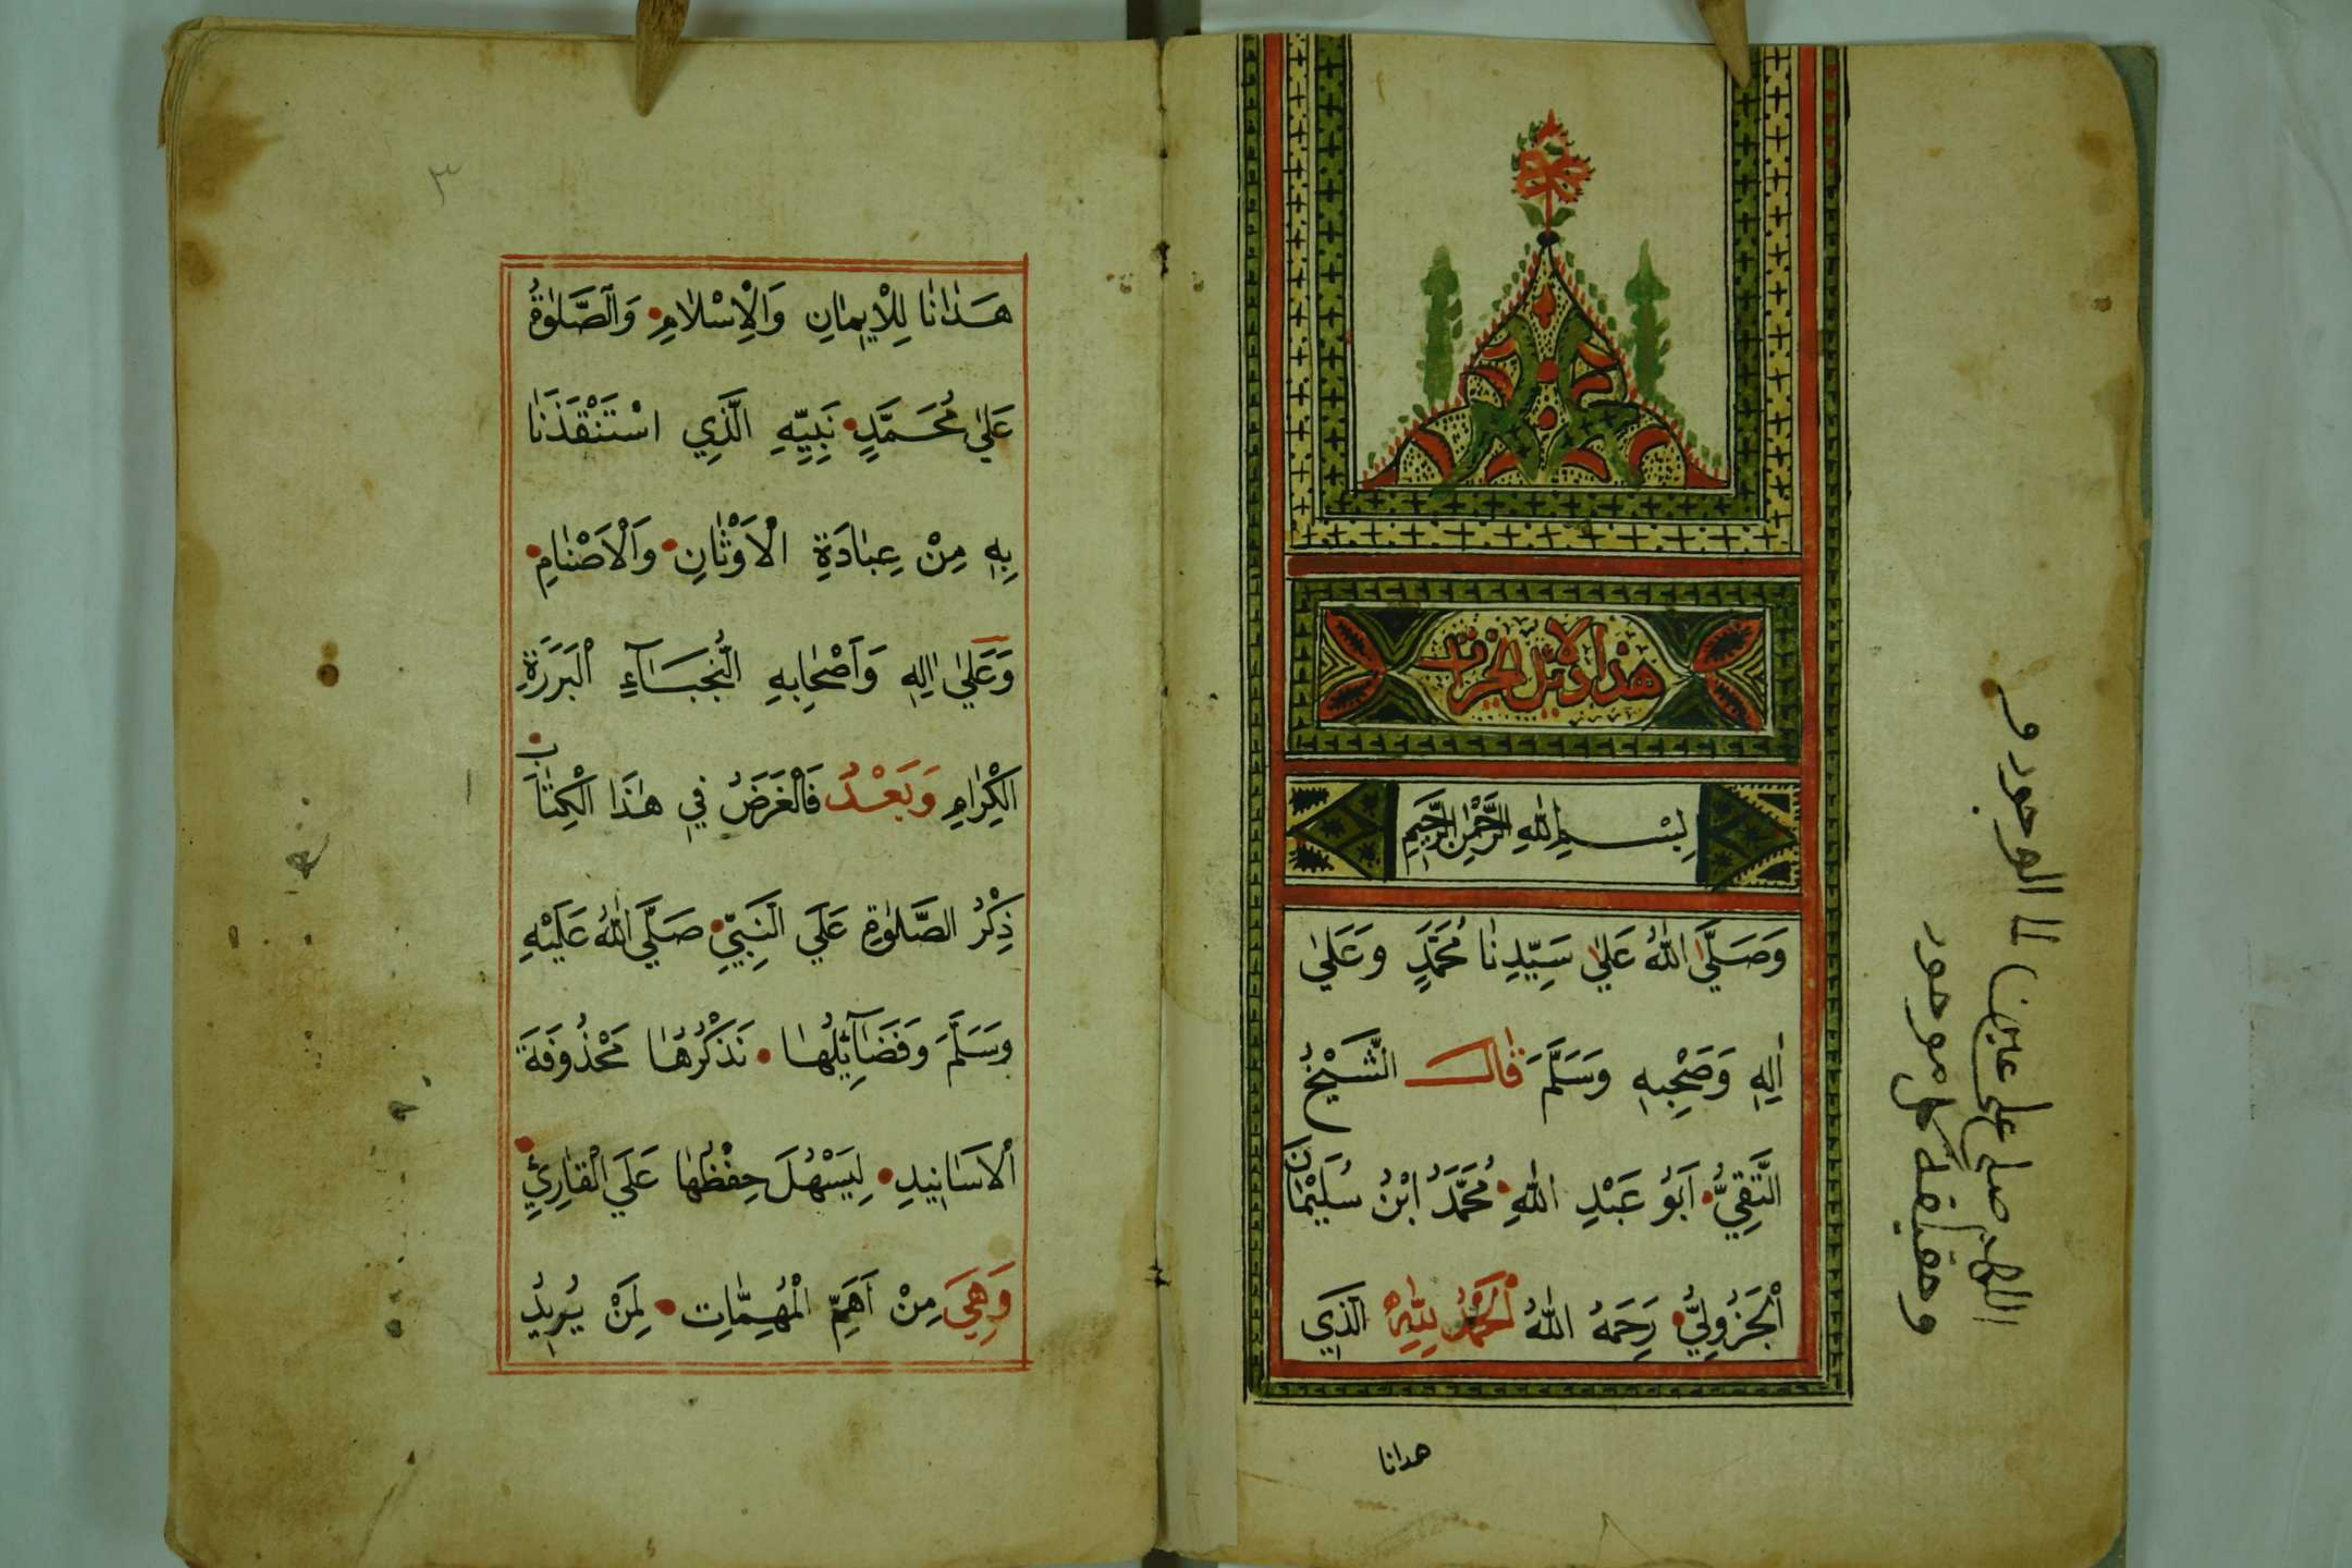 هذا دلائل الخيرات
بِسْمِ اللهِ الرَّحْمٰنِ الرَّحِيمِ
وَصَلَّى اللهُ عَلٰى سَيِّدِنَا مُحَمَّدٍ وَعَلٰى
اٰلِهِ وَصَحْبِهِ وَسَلَّمَ قَالَ الشَّيْخُ
التَّقِيُّ اَبُو عَبْدِ اللهِ مُحَمَّدُ ابْنُ سُلَيْمَانَ
الْجَزُولِيُّ رَحِمَهُ اللهُ اَلْحَمْدُ لِلّٰهِ الَّذِي
هدانا
اللهم صل على عين الوجود و
٣
هَدٰانَا لِلْاِيمَانِ وَالْاِسْلَامِ وَالصَّلٰوةُ
عَلٰى مُحَمَّدٍ نَبِيِّهِ الَّذِي اسْتَنْقَذَنَا
بِهِ مِنْ عِبَادَةِ الْاَوْثَانِ وَالْاَصْنَامِ
وَعَلٰى اٰلِهِ وَاَصْحَابِهِ النُّجَبَآءِ الْبَرَرَةِ
الْكِرَامِ وَبَعْدُ فَالْغَرَضُ فِي هٰذَا الْكِتَابِ
ذِكْرُ الصَّلٰوةِ عَلَي النَّبِيِّ صَلَّي اللهُ عَلَيْهِ
وَسَلَّمَ وَفَضَآئِلُهَا نَذْكُرُهَا مَحْذُوفَةَ
الْاَسَانِيدِ لِيَسْهُلَ حِفْظُهَا عَلَي الْقَارِئِ
وَهِيَ مِنْ اَهَمِّ الْمُهِمَّاتِ لِمَنْ يُرِيدُ